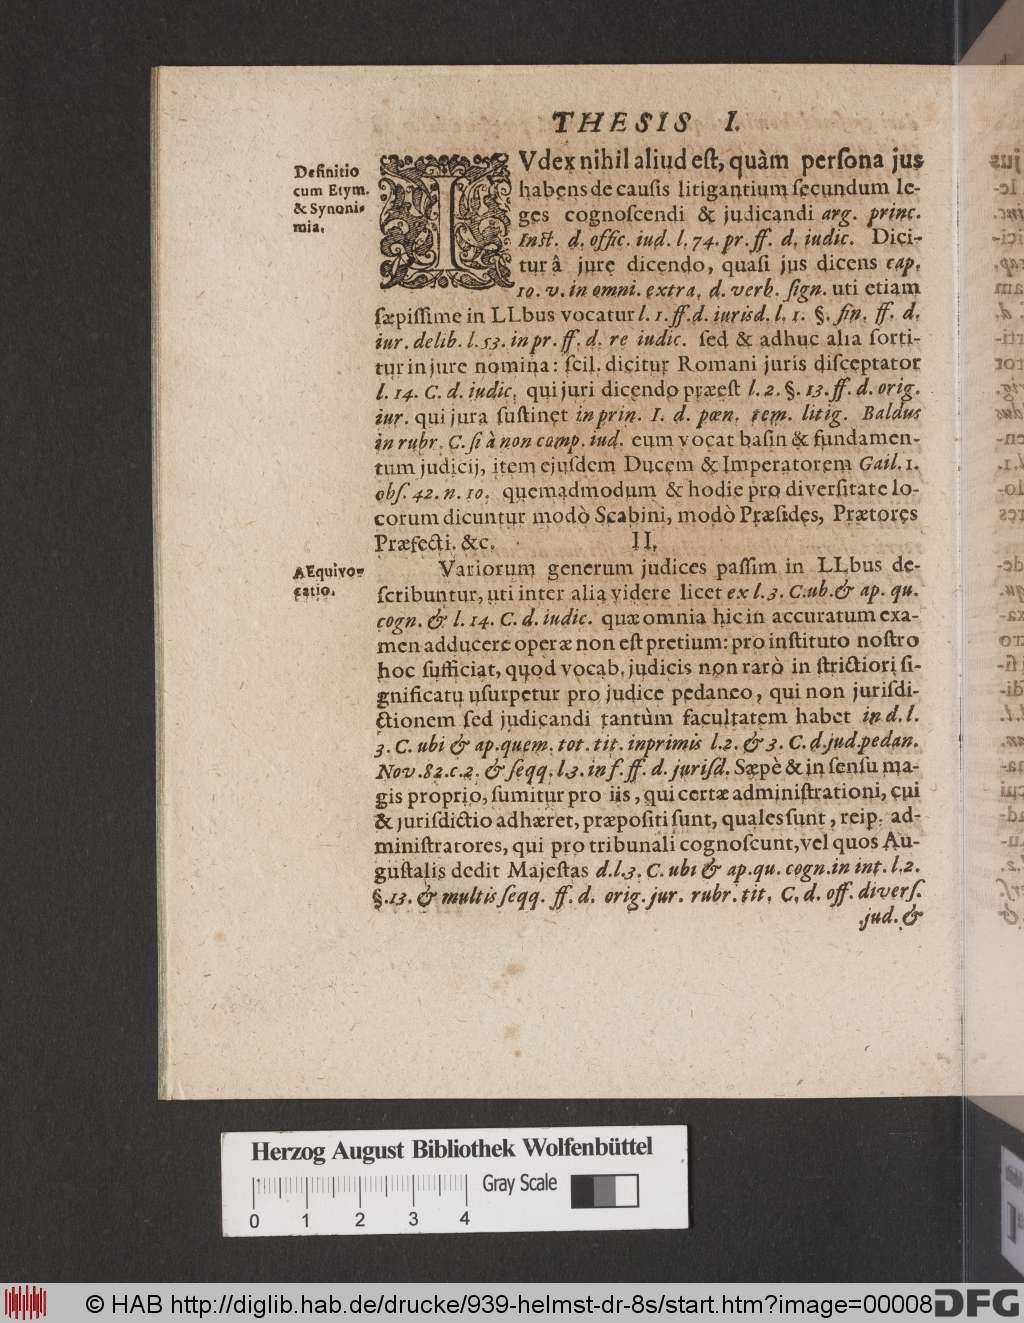 THESIS I.
Definitio
cum Etym.
& Synoni-
mia.
IVdex nihil aliud eſt, quàm perſona jus
habens de cauſis litigantium ſecundum le-
ges cognoſcendi & judicandi arg. princ.
Inſt. d. offic. iud. l. 74. pr. ff. d. iudic. Dici-
tur â jure dicendo, quaſi jus dicens cap.
10. v. in omni. extra, d. verb. ſign. uti etiam
ſæpiſſime in LLbus vocatur l. 1. ff. d. iurisd. l. 1. §. fin. ff. d.
iur. delib. l. 53. in pr. ff. d. re iudic. ſed & adhuc alia ſorti-
tur in jure nomina: ſcil. dicitur Romani juris diſceptator
l. 14. C. d. iudic. qui juri dicendo præeſt l. 2. §. 13. ff. d. orig.
iur. qui jura ſuſtinet in prin. I. d. pœn. tem. litig. Baldus
in rubr. C. ſi à non comp. iud. eum vocat baſin & fundamen-
tum judicij, item ejuſdem Ducem & Imperatorem Gail. 1.
obſ. 42. n. 10. quemadmodum & hodie pro diverſitate lo-
corum dicuntur modò Scabini, modò Præſides, Prætores
Præfecti. &c.
II.
AEquivo-
catio.
Variorum generum judices paſſim in LLbus de-
ſcribuntur, uti inter alia videre licet ex l. 3. C. ub. & ap. qu.
cogn. & l. 14. C. d. iudic. quæ omnia hic in accuratum exa-
men adducere operæ non eſt pretium: pro inſtituto noſtro
hoc ſufficiat, quod vocab. judicis non rarò in ſtrictiori ſi-
gnificatu uſurpetur pro judice pedaneo, qui non juriſdi-
ctionem ſed judicandi tantùm facultatem habet in d. l.
3. C. ubi & ap. quem. tot. tit. inprimis l. 2. & 3. C. d. jud. pedan.
Nov. 82. c. 2. & ſeqq. l. 3. in f. ff. d. juriſd. Sæpè & in ſenſu ma-
gis proprio, ſumitur pro iis, qui certæ adminiſtrationi, cui
& jurisdictio adhæret, præpoſiti ſunt, quales ſunt, reip. ad-
miniſtratores, qui pro tribunali cognoſcunt, vel quos Au-
guſtalis dedit Majeſtas d. l. 3. C. ubi & ap. qu. cogn. in int. l. 2.
§. 13. & multis ſeqq. ff. d. orig. jur. rubr. tit. C. d. off. diverſ.
jud. &
Herzog August Bibliothek Wolfenbüttel
Gray Scale
0 1 2 3 4
© HAB http://diglib.hab.de/drucke/939-helmst-dr-8s/start.htm?image=00008
DFG